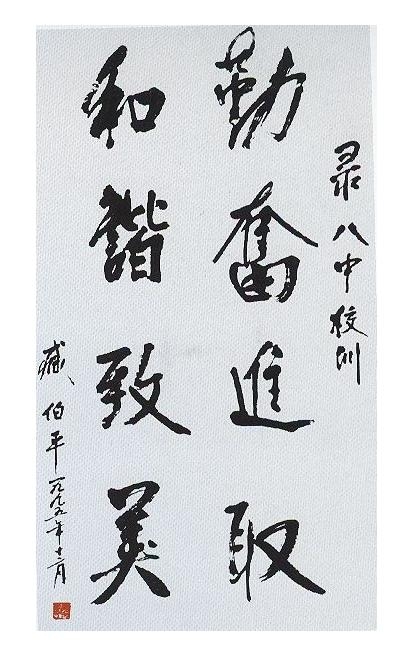 录八中校训
勤奮進取
和諧致美
臧伯平一九九五年十二月